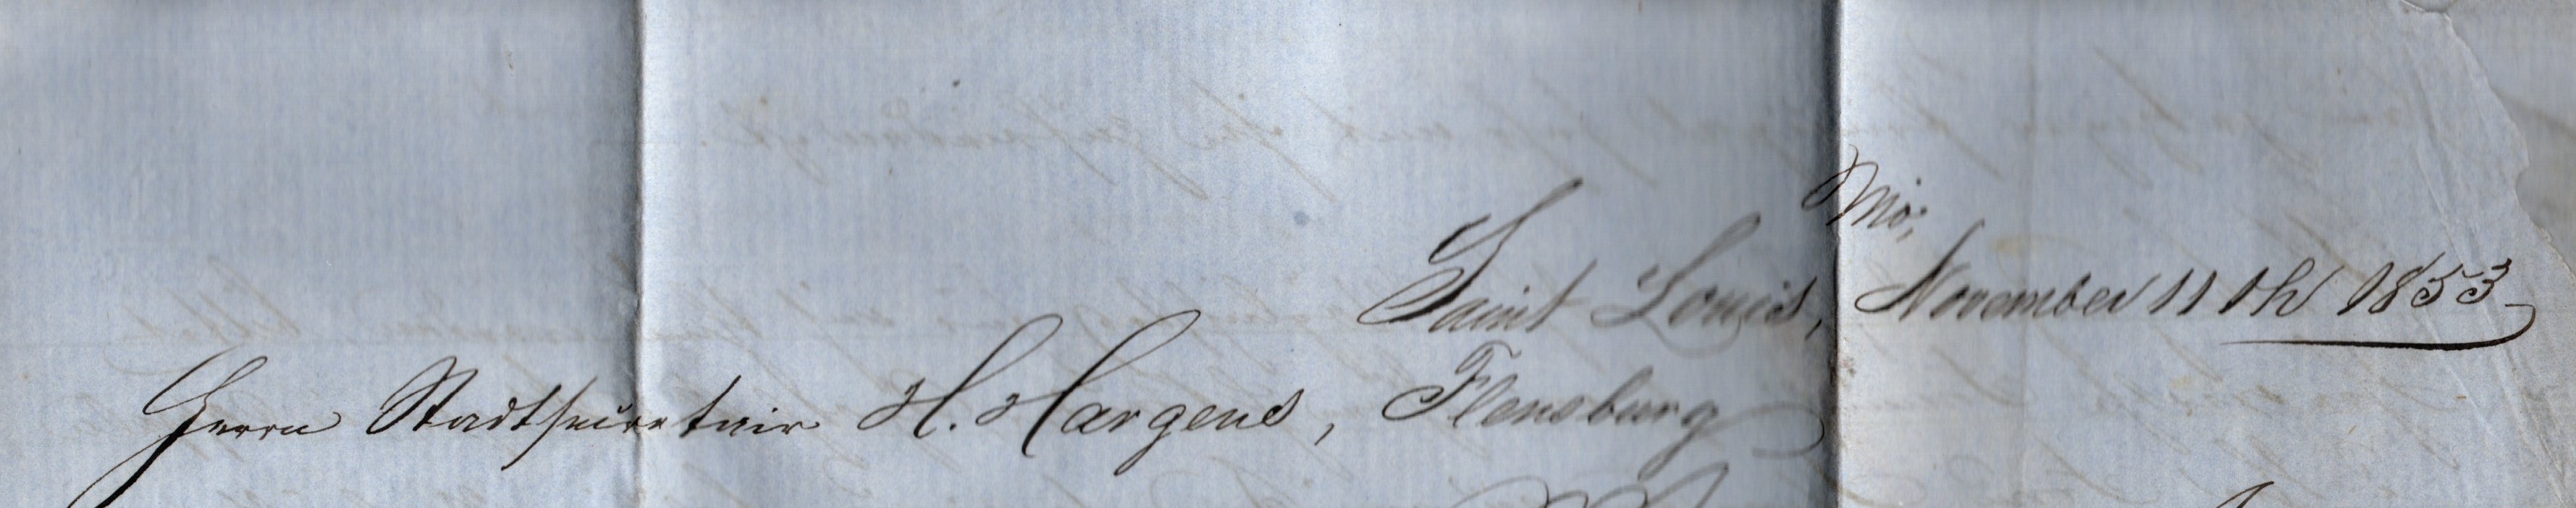 Mo,
Saint Louis, November 11th 1853
Herrn Stadtsecretair H. Hargens, Flensburg